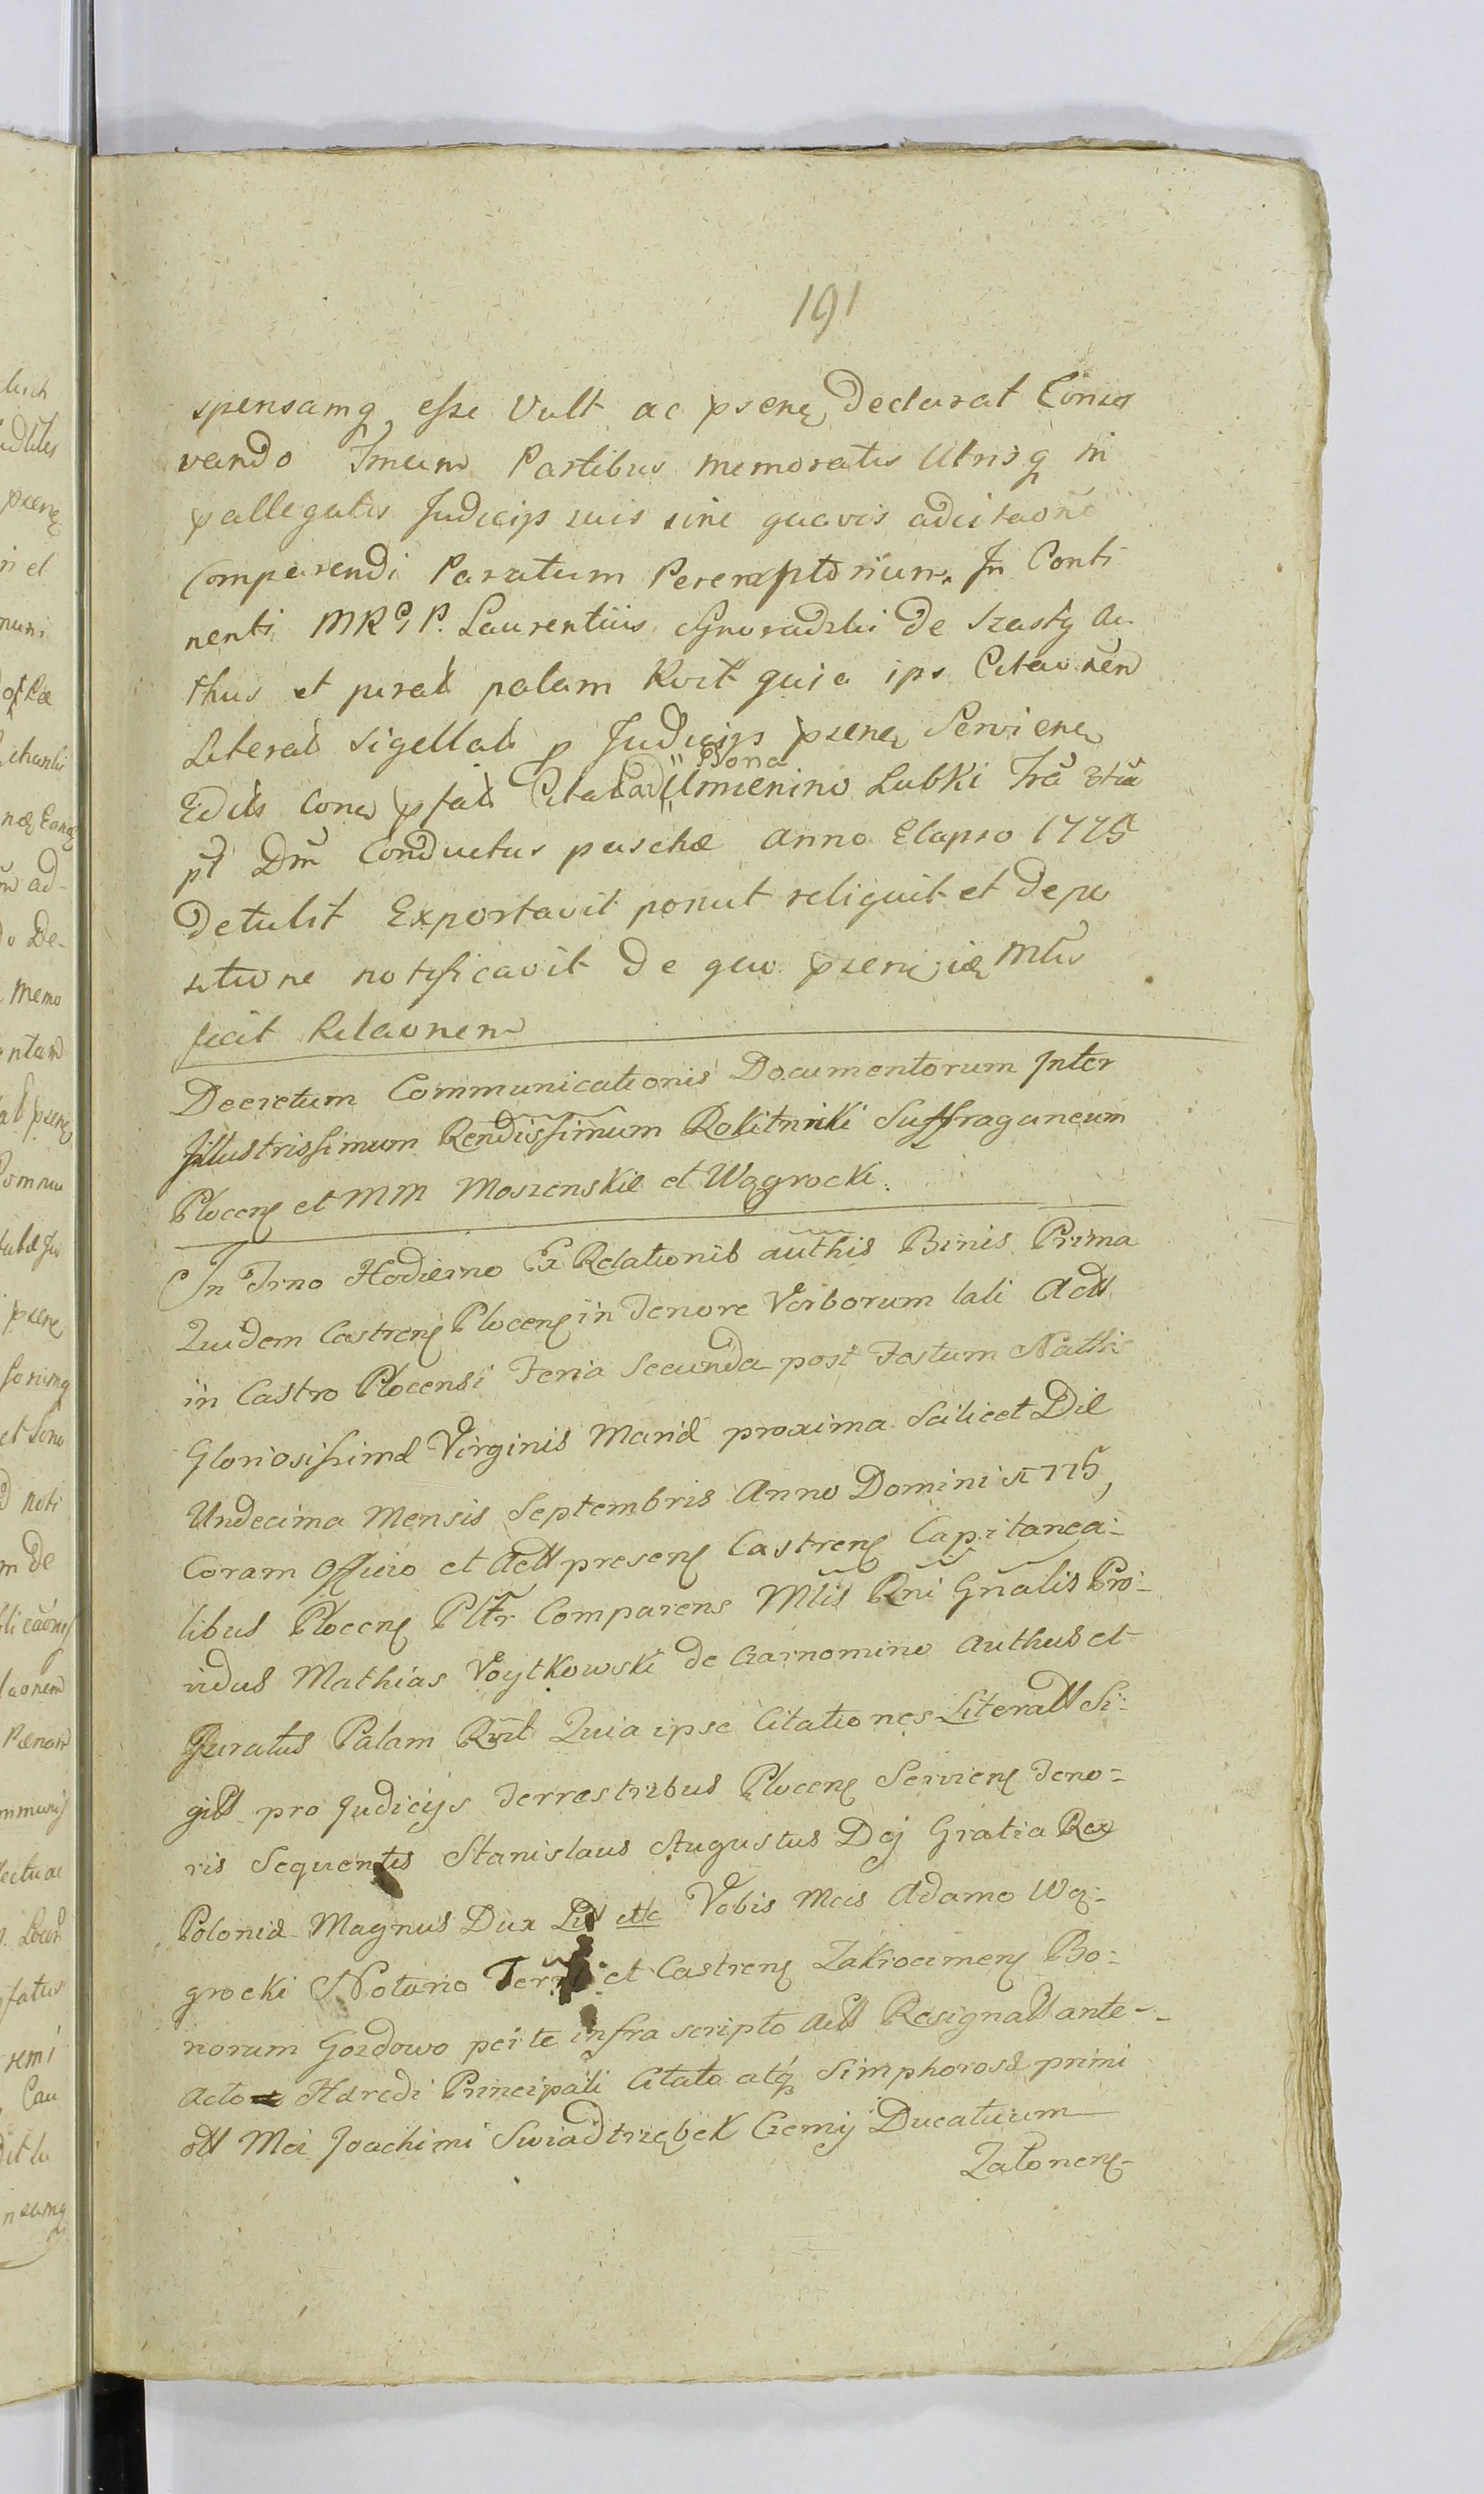 191
spensamq esse Vult ac psenę declarat Conser
vando Tmum Partibus memoratis Utrisq in
pallegatis Judicijs suis sine quavis adcitaone
Comparendi Paratum Peremptorium. In Conti
nenti MRGP. Laurentius Gnoradzki de Szasty au
thus et jurat palam Rvit quia ips Citaonen
Literat Sigellat p Judicijs psenę Servienę
Edits Cone pfat Citat ad Bona Umienino Lubki Fra 3tia
pt Dm Conductus paschæ anno Elapso 1775
detulit Exportavit ponut reliquit et depo
sitione notificavit de quo psenę iæ Mtis
fecit Relaonem
Decretum Communicationis Documentorum Inter
Illustrissimum Rendissimum Rokitnicki Suffraganeum
Plocenę et MM Moszenskie et Wągrocki.
In Trno Hodierno Ex Relationib authis Binis Prima
Quidem Castrenę Plocenę in Tenore Verborum tali Actt
in Castro Plocensi Feria Secunda post Festum Nattis
Gloriosissimæ Virginis Mariæ proxima Scilicet Die
Undecima Mensis Septembris Anno Domini 1775,
Coram Officio et Actt presenę Castrenę Capitanea=
libus Plocenę Pltr Comparens Mtis Rni Gnalis Pro=
vidus Mathias Voytkowski de Czarnomino Authus et
Juratus Palam Rvit Quia ipse Citationes Literatt Si=
gitt pro Judicijs Terrestribus Plocenę Servienę Teno=
ris Sequentis Stanislaus Augustus Dej Gratia Rex
Poloniæ Magnus Dux Lit ettc Vobis Mcis Adamo Wą=
grocki Notario Terri et Castrenę Zakrocimenę Bo=
norum Gozdowo per te infra scripto Actt Resignatt ante=
acto Hæredi Principali Citato atq Simphorosæ primi
ott Mci Joachimi Swiadtrzębek Czemij Ducatuum
Zatonenę